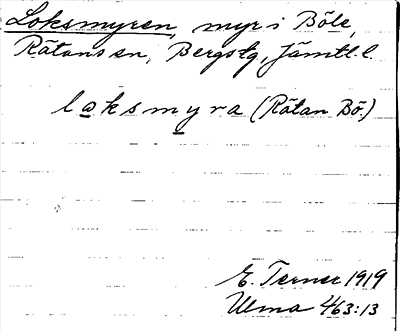 Loksmyren, myr i Böle,
Rätans sn, Bergstg, Jämtl. l.
laksmyra (Rätan Bö.)
E. Terner 1919
Ulma 463:13